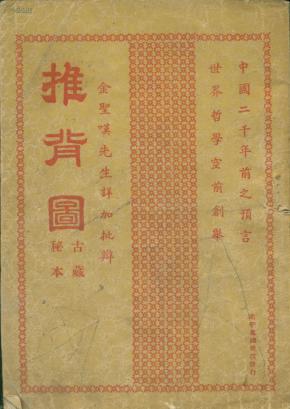 中國二千年前之預言
世界哲學空前創舉
金聖嘆先生詳加批辯
推背圖
古藏
秘本